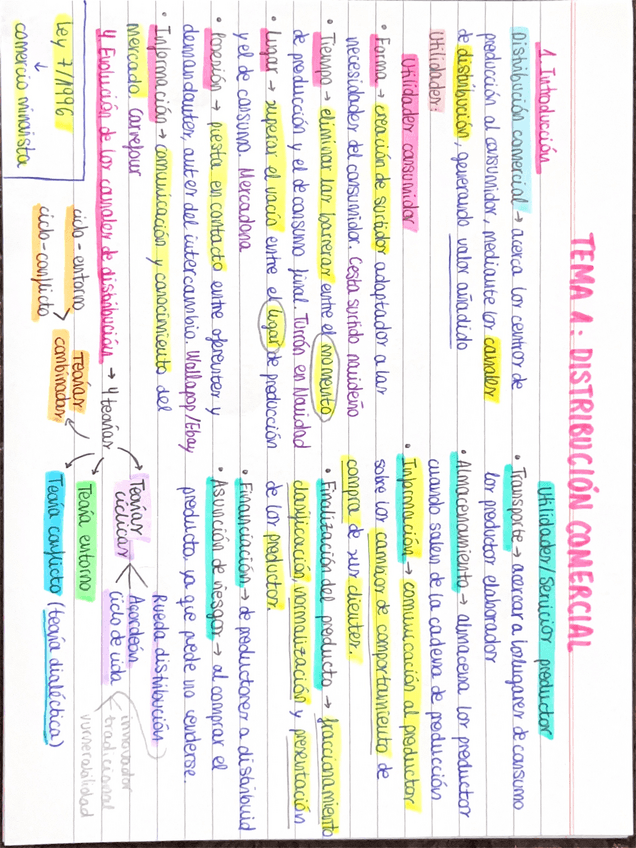 TEMA 1: DISTRIBUCIÓN COMERCIAL
1. Introducción
Distribución comercial → acerca los centros de
producción al consumidor, mediante los canales
de distribución, generando valor añadido
Utilidades:
Utilidades consumidor
• Forma → creación de surtidos adaptados a las
necesidades del consumidor. Cesta surtido navideño
• Tiempo → eliminar las barreras entre el momento
de producción y el de consumo final. Turrón en Navidad
• Lugar → superar el vacío entre el lugar de producción
y el de consumo. Mercadona
• Posesión → puesta en contacto entre oferentes y
demandantes, antes del intercambio. Wallapop/Ebay
• Información → comunicación y conocimiento del
mercado. carrefour
Utilidades/Servicios productor
• Transporte → acercar a los lugares de consumo
los productos elaborados
• Almacenamiento → almacena los productos
cuando salen de la cadena de producción
• Información → comunicación al productor
sobre los cambios de comportamiento de
compra de sus clientes.
• Finalización del producto → fraccionamiento
clasificación, normalización y presentación
de los productos.
• Financiación → de productores a distribuid
• Asunción de riesgos → al comprar el
producto ya que puede no venderse.
4. Evolución de los canales de distribución → 4 teorías
Teorías cíclicas
Rueda distribución
Acordeón
ciclo de vida
innovador
tradicional
vulnerabilidad
Teoría entorno
Teoría conflicto (teoría dialéctica)
Teorías combinadas
ciclo-entorno
ciclo-conflicto
Ley 7/1996
↓
comercio minorista